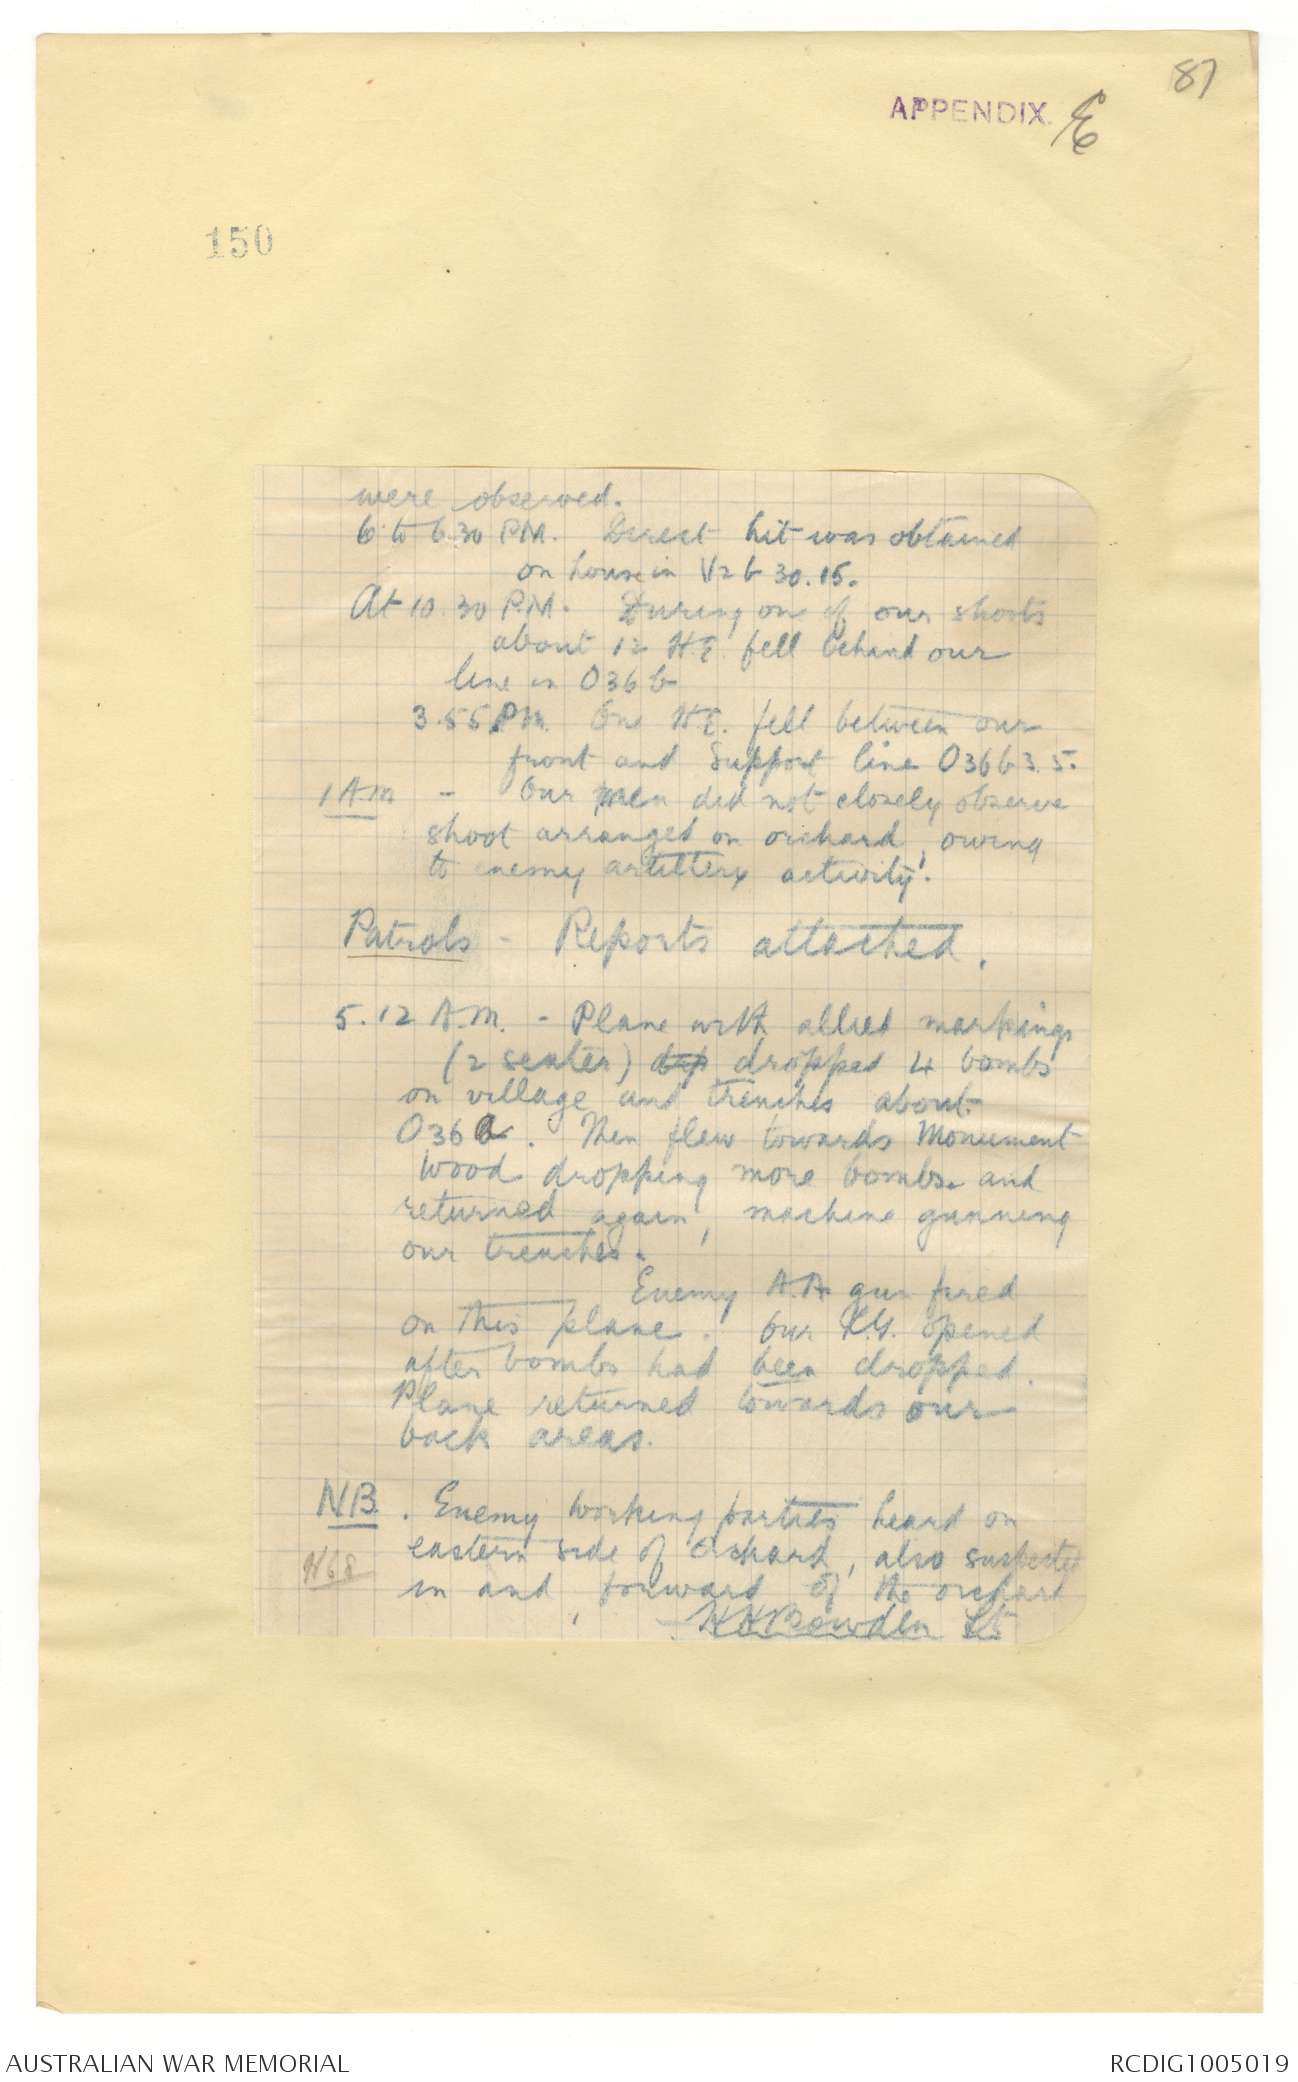 87
APPENDIX. E
150
were observed.
6 to 6.30 P.M. Direct hit was obtained
on house in V2b 30.15.
At 10.30 P.M. During one of our shoots
about 12 H.E. fell behind our
line in O36b
3.55 P.M. One H.E. fell between our
front and Support line O36b 3.5.
1 A.M - Our men did not closely observe
shoot arranged on orchard, owing
to enemy artillery activity.
Patrols - Reports attached.
5.12 A.M. - Plane with allied markings
(2 seater) dop dropped 4 bombs
on village and trenches about
O36a. Then flew towards Monument
Wood dropping more bombs. and
returned again, machine gunning
our trenches.
Enemy A.A. gun fired
on this plane. Our L.G. opened
after bombs had been dropped.
Plane returned towards our
back areas.
NB. Enemy working parties heard on
eastern side of Orchard, also suspected
in and forward of the orchard
HHBowden Lt
AUSTRALIAN WAR MEMORIAL
RCDIG1005019